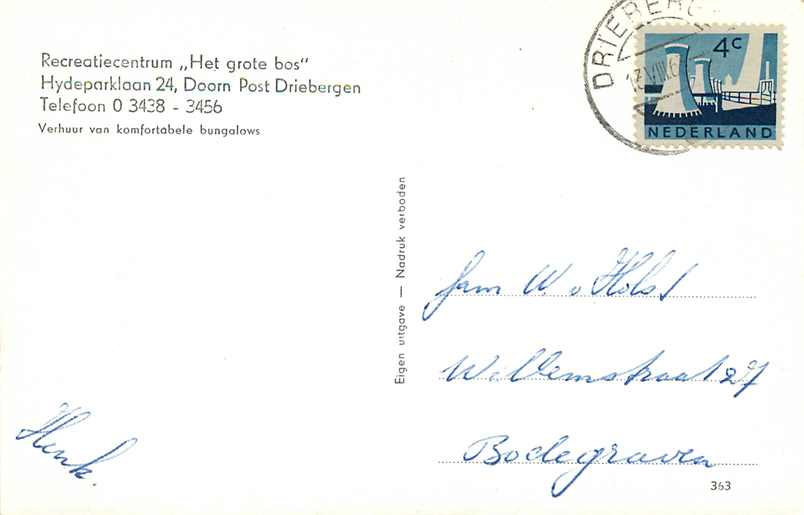 Recreatiecentrum „Het grote bos"
Hydeparklaan 24, Doorn Post Driebergen
Telefoon 0 3438 - 3456
Verhuur van komfortabele bungalows
DRIEBERG
4c
NEDERLAND
Eigen uitgave — Nadruk verboden
fam W. v Holst
Willemstraat 27
Bodegraven
Henk.
363